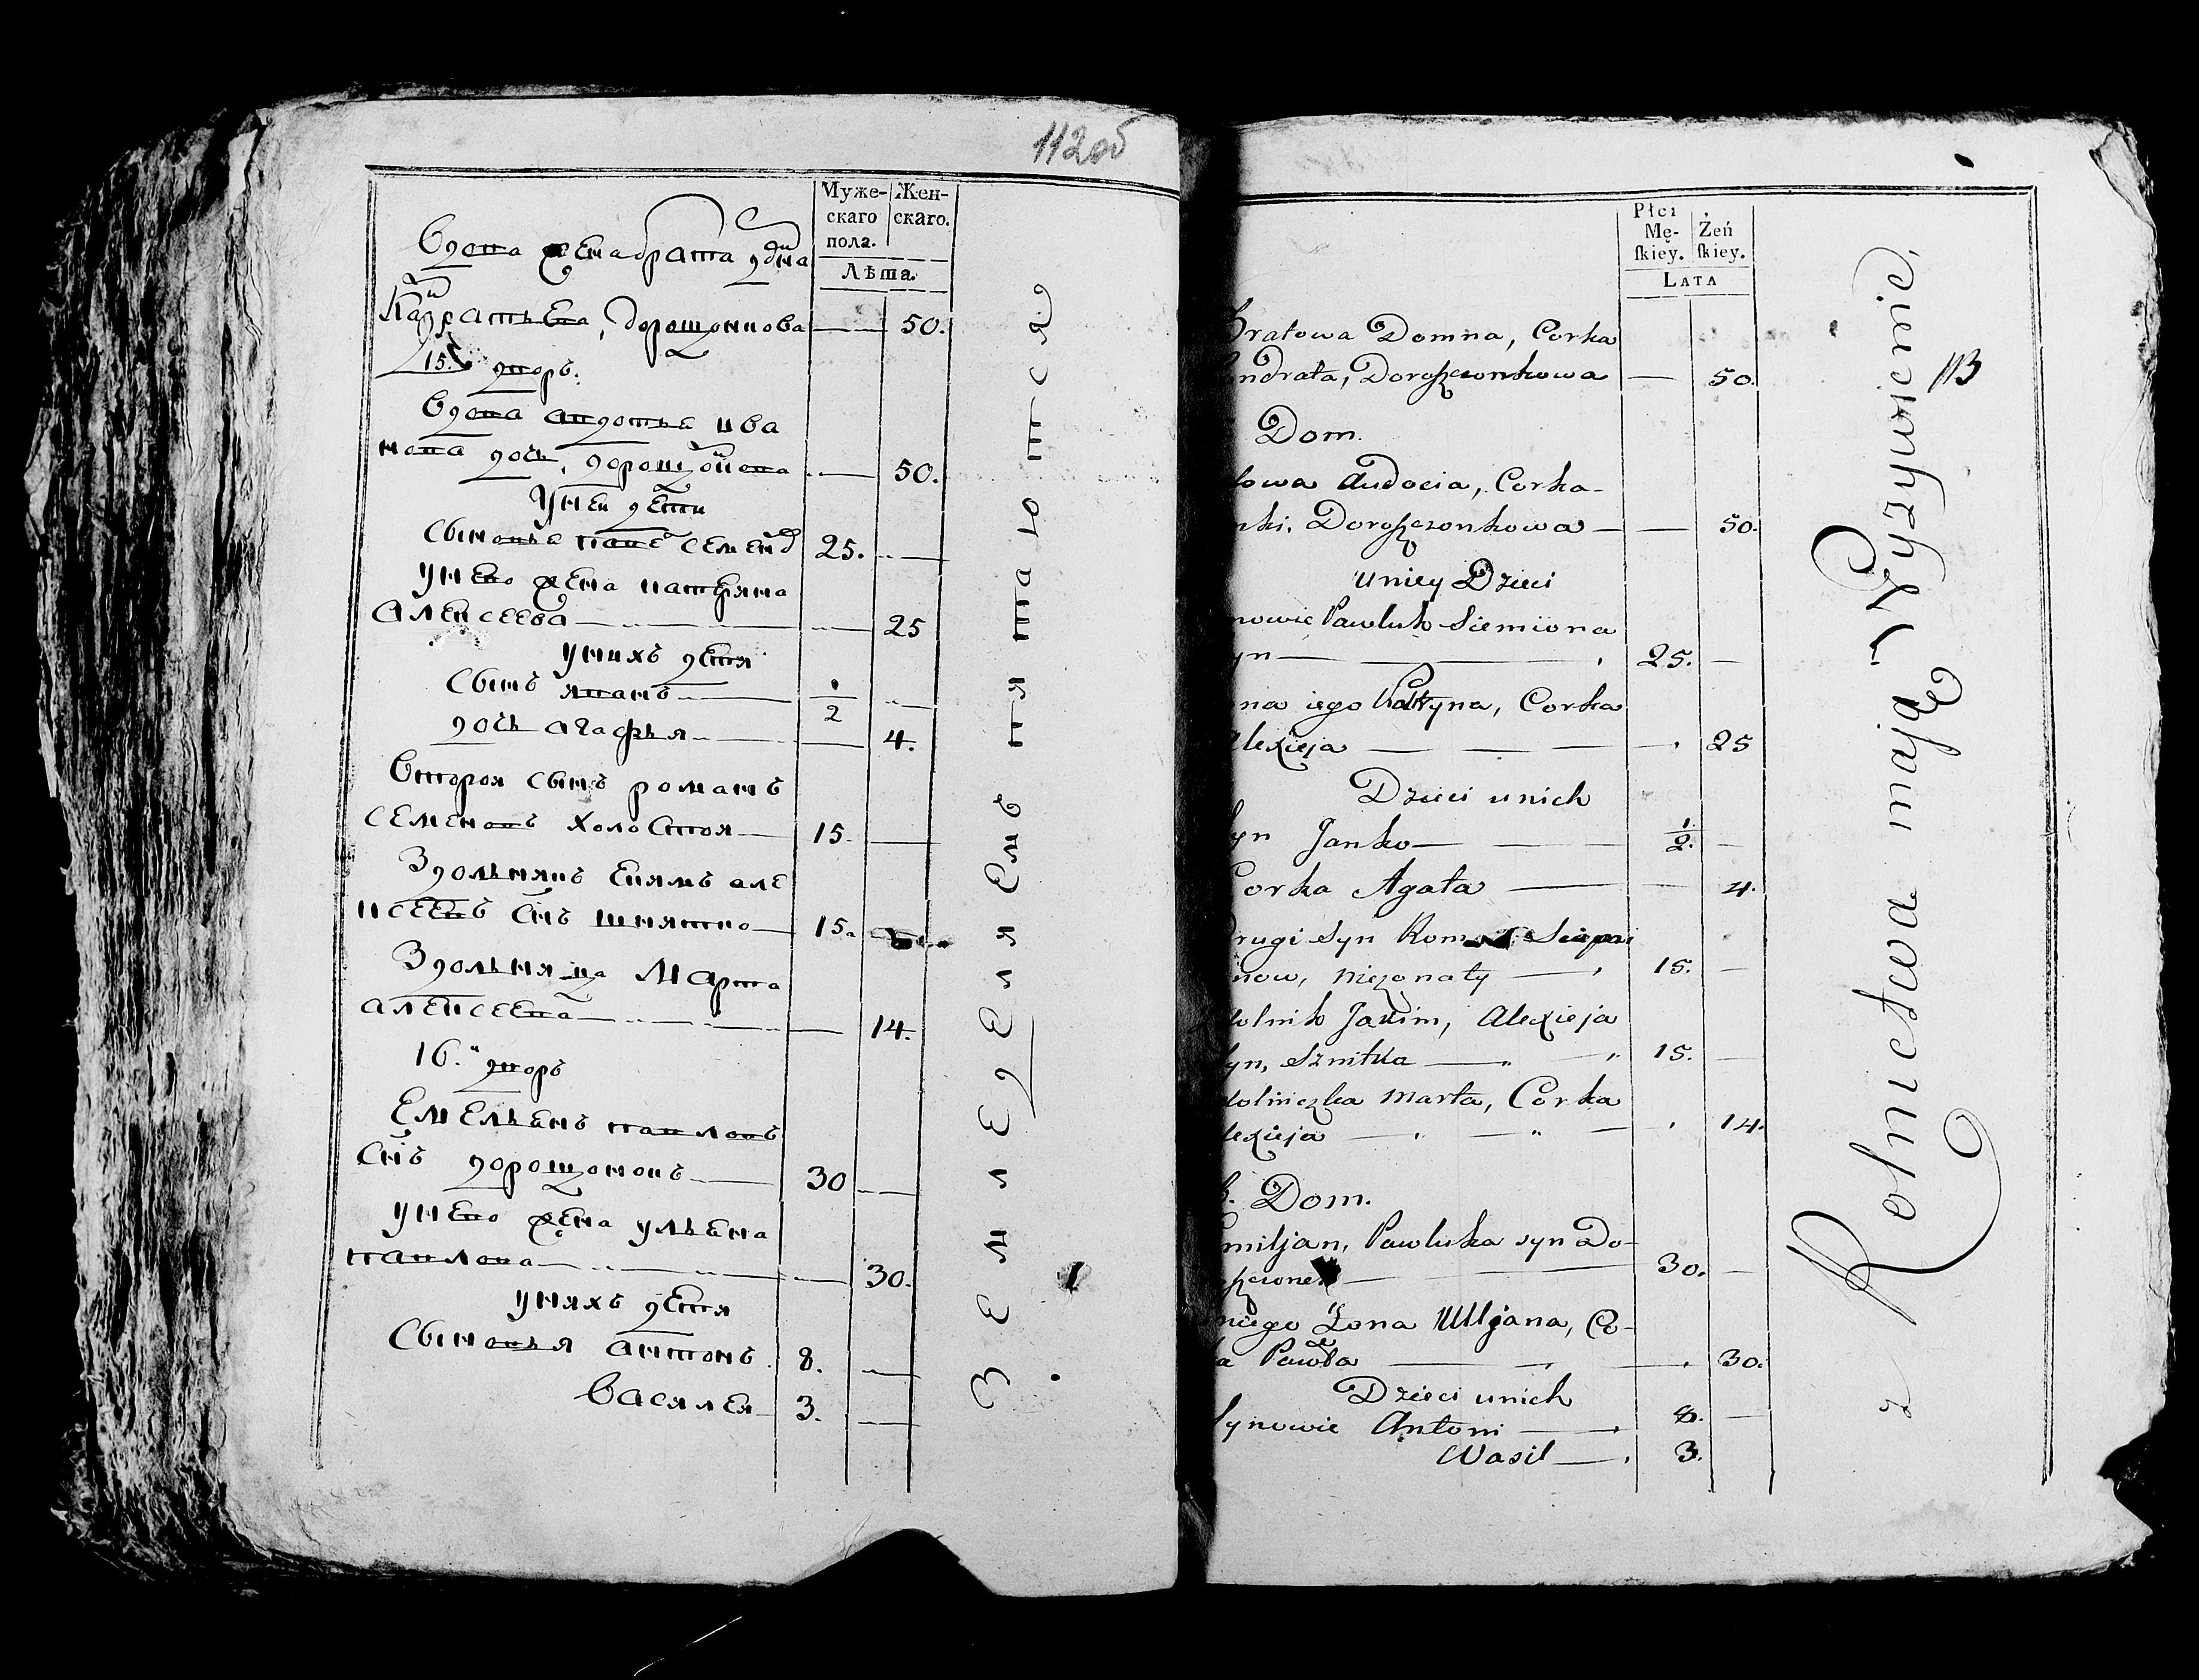 112об
Муже- Жен-
скаго скаго.
пола.
Лѣта.
вдова жена брата домна
кадратьева, дорошонкова — 50.
15.й дворъ.
вдова авдотья ива
нова дочь, дорошонкова — 50.
унеи дети
сыновья павел семенов 25. —
унево жена катеряна
алексеева — 25
унихъ детя
сынъ яванъ 1/2 —
дочь агафья — 4.
вторая сынъ романъ
семеновъ холостоя 15 —
Здольникъ екимъ але
ксеевъ снъ шнятко 15. —
Здольняца Марта
алексеева — 14.
16.й дворъ
Емельянъ павловъ
снъ дорошонокъ 30 —
унево жена ульяна
павлова — 30.
уняхъ детя
сыновья антонъ 8. —
василея 3. —
Земледелиемъ питаются
Płci
Mę- Żeń
ſkiey. ſkiey.
LATA
Bratowa Domna, Corka
ndrata, Doroſzezonkowa — 50.
Dom.
dowa Audocia, Corka
nki, Doroſzczonkowa — 50.
uniey Dzieci
nowie Pawluk Siemiona
yn — 25. —
na iego Katryna, Corka
Alexieja — 25
Dzieci unich
Syn Janko — 1/2. —
Corka Agata — 4.
Drugi Syn Roman
now, nieżonaty — 15. —
dolnik Jakim, Alexieja
Syn, Sznitka — 15. —
dolniczka Marta, Corka
lexieja — 14.
Dom.
miljan, Pawluka syn Do-
ſzczonek — 30. —
niego Żona Ulljana, Co-
ka Pawła — 30.
Dzieci unich
Synowie Antoni — 8. —
Wasil — 3.
z Rolnictwa mają Wyżywienie,
113